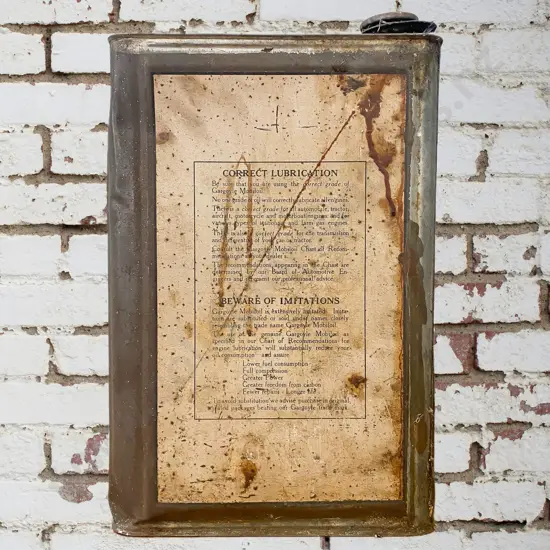 CORRECT LUBRICATION
Be sure that you are using the correct grade of
Gargoyle Mobiloil.
No one grade of oil will correctly lubricate all engines.
There is a correct grade for all automobile, tractor,
aircraft, motorcycle and motorboat engines and for
various types of stationary and farm gas engines.
There is also a correct grade for the transmission
and differential of your car or tractor.
Consult the Gargoyle Mobiloil Chart of Recom-
mendations at your dealer's.
The recommendations appearing in the Chart are
determined by our Board of Automotive En-
gineers and represent our professional advice.
BEWARE OF IMITATIONS
Gargoyle Mobiloil is extensively imitated. Imita-
tions are substituted or sold under names closely
resembling the trade name Gargoyle Mobiloil.
The use of the genuine Gargoyle Mobiloil as
specified in our Chart of Recommendations for
engine lubrication will substantially reduce your
oil consumption and assure
Lower fuel consumption
Full compression
Greater Power
Greater freedom from carbon
Fewer repairs - Longer life
To avoid substitution we advise purchase in original
sealed packages bearing our Gargoyle trade mark.